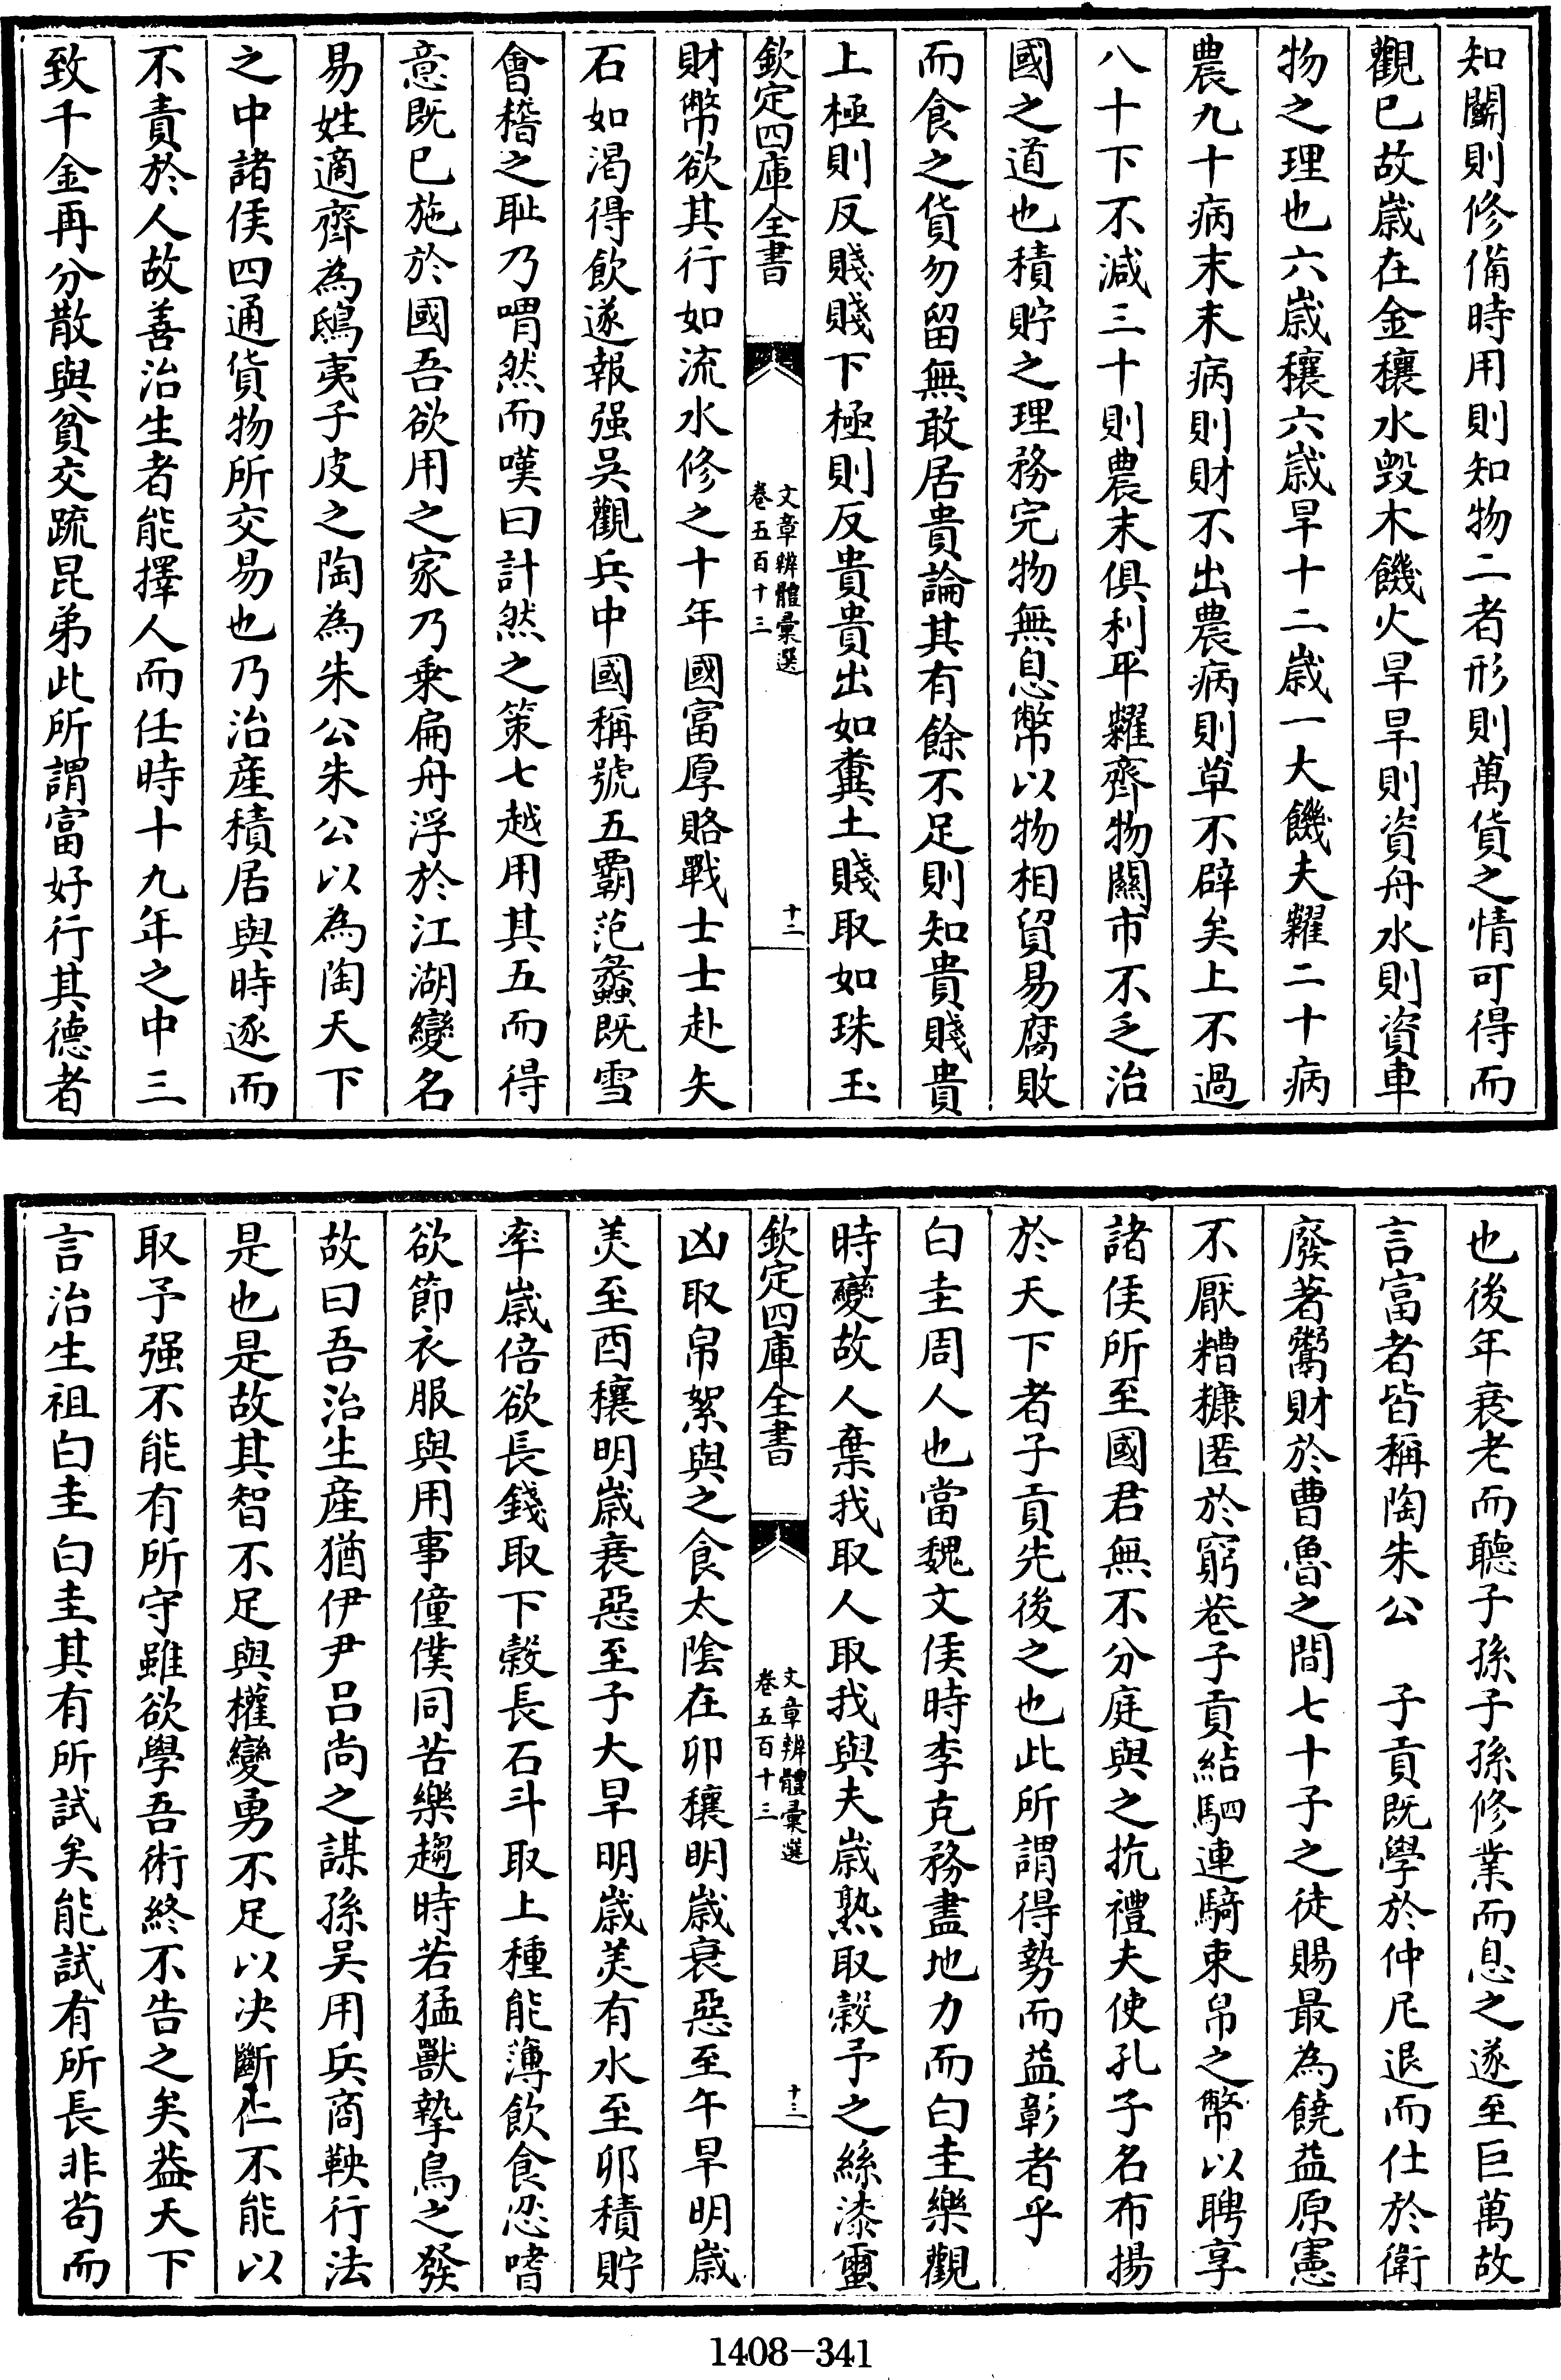 知鬭則修備時用則知物二者形則萬貨之情可得而
觀已故歲在金穰水毁木饑火旱旱則資舟水則資車
物之理也六歲穰六歲旱十二歲一大饑夫糶二十病
農九十病末末病則財不出農病則草不辟矣上不過
八十下不減三十則農末俱利平糶齊物關市不乏治
國之道也積貯之理務完物無息幣以物相貿易腐敗
而食之貨勿留無敢居貴論其有餘不足則知貴賤貴
上極則反賤賤下極則反貴貴出如糞土賤取如珠玉
欽定四庫全書
文章辨體彙選
卷五百十三
十二
財幣欲其行如流水修之十年國富厚賂戰士士赴矢
石如渴得飲遂報强吳觀兵中國稱號五霸范蠡既雪
會稽之耻乃喟然而嘆曰計然之策七越用其五而得
意既已施於國吾欲用之家乃乘扁舟浮於江湖變名
易姓適齊為鴟夷子皮之陶為朱公朱公以為陶天下
之中諸侯四通貨物所交易也乃治産積居與時逐而
不責於人故善治生者能擇人而任時十九年之中三
致千金再分散與貧交疏昆弟此所謂富好行其德者
也後年衰老而聽子孫子孫修業而息之遂至巨萬故
言富者皆稱陶朱公　子貢既學於仲尼退而仕於衛
廢著鬻財於曹魯之間七十子之徒賜最為饒益原憲
不厭糟糠匿於窮巷子貢結駟連騎束帛之幣以聘享
諸侯所至國君無不分庭與之抗禮夫使孔子名布揚
於天下者子貢先後之也此所謂得勢而益彰者乎
白圭周人也當魏文侯時李克務盡地力而白圭樂觀
時變故人棄我取人取我與夫歲熟取穀予之絲漆蠒
欽定四庫全書
文章辨體彙選
卷五百十三
十三
凶取帛絮與之食太陰在卯穰明歲衰惡至午旱明歲
美至酉穰明歲衰惡至子大旱明歲美有水至卯積貯
率歲倍欲長錢取下穀長石斗取上種能薄飲食忍嗜
欲節衣服與用事僮僕同苦樂趨時若猛獸摯鳥之發
故曰吾治生産猶伊尹吕尚之謀孫吳用兵商鞅行法
是也是故其智不足與權變勇不足以决斷仁不能以
取予强不能有所守雖欲學吾術終不告之矣葢天下
言治生祖白圭白圭其有所試矣能試有所長非苟而
1408-341